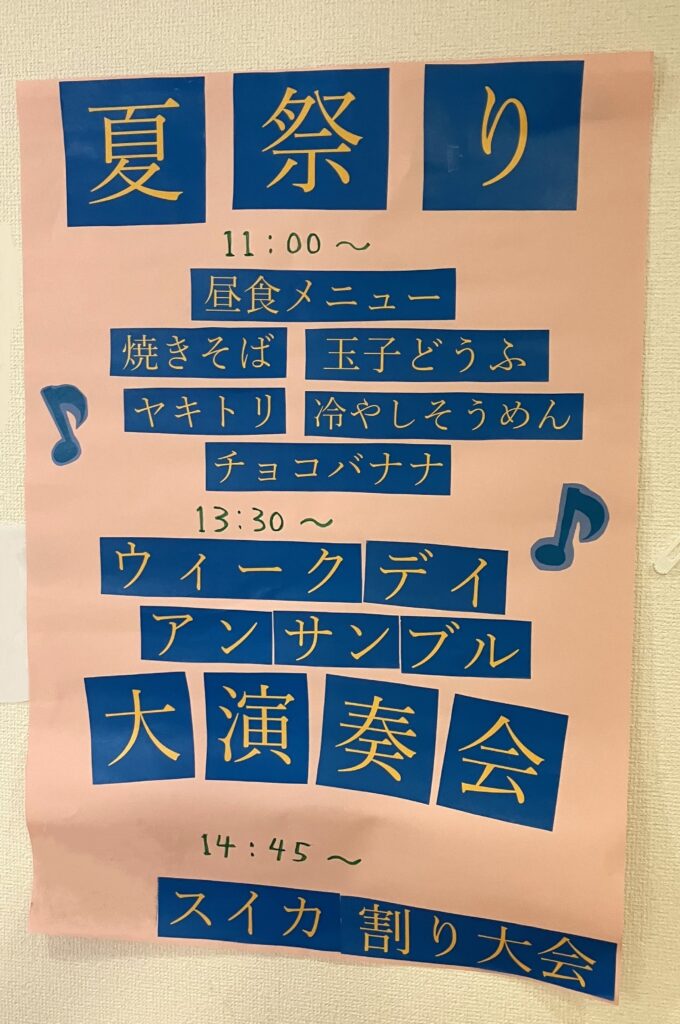 夏祭り
11:00～
昼食メニュー
焼きそば 玉子どうふ
ヤキトリ 冷やしそうめん
チョコバナナ
13:30～
ウィークデイ
アンサンブル
大演奏会
14:45～
スイカ割り大会